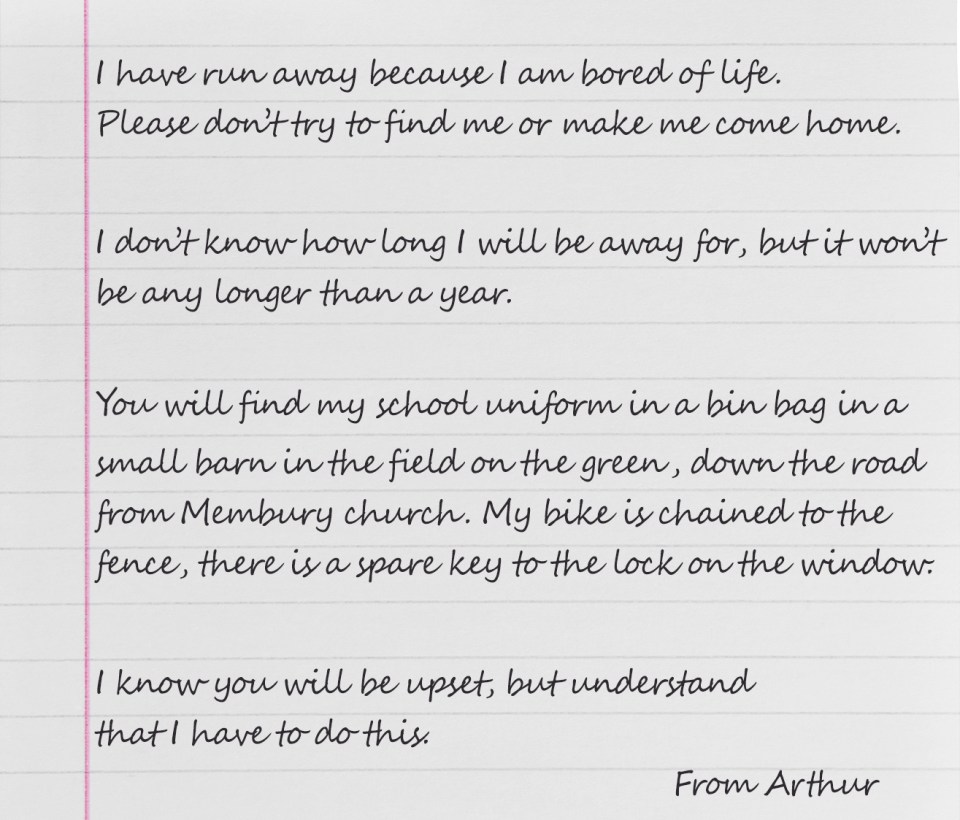 I have run away because I am bored of life.
Please don't try to find me or make me come home.
I don't know how long I will be away for, but it won't
be any longer than a year.
You will find my school uniform in a bin bag in a
small barn in the field on the green, down the road
from Membury church. My bike is chained to the
fence, there is a spare key to the lock on the window.
I know you will be upset, but understand
that I have to do this.
From Arthur